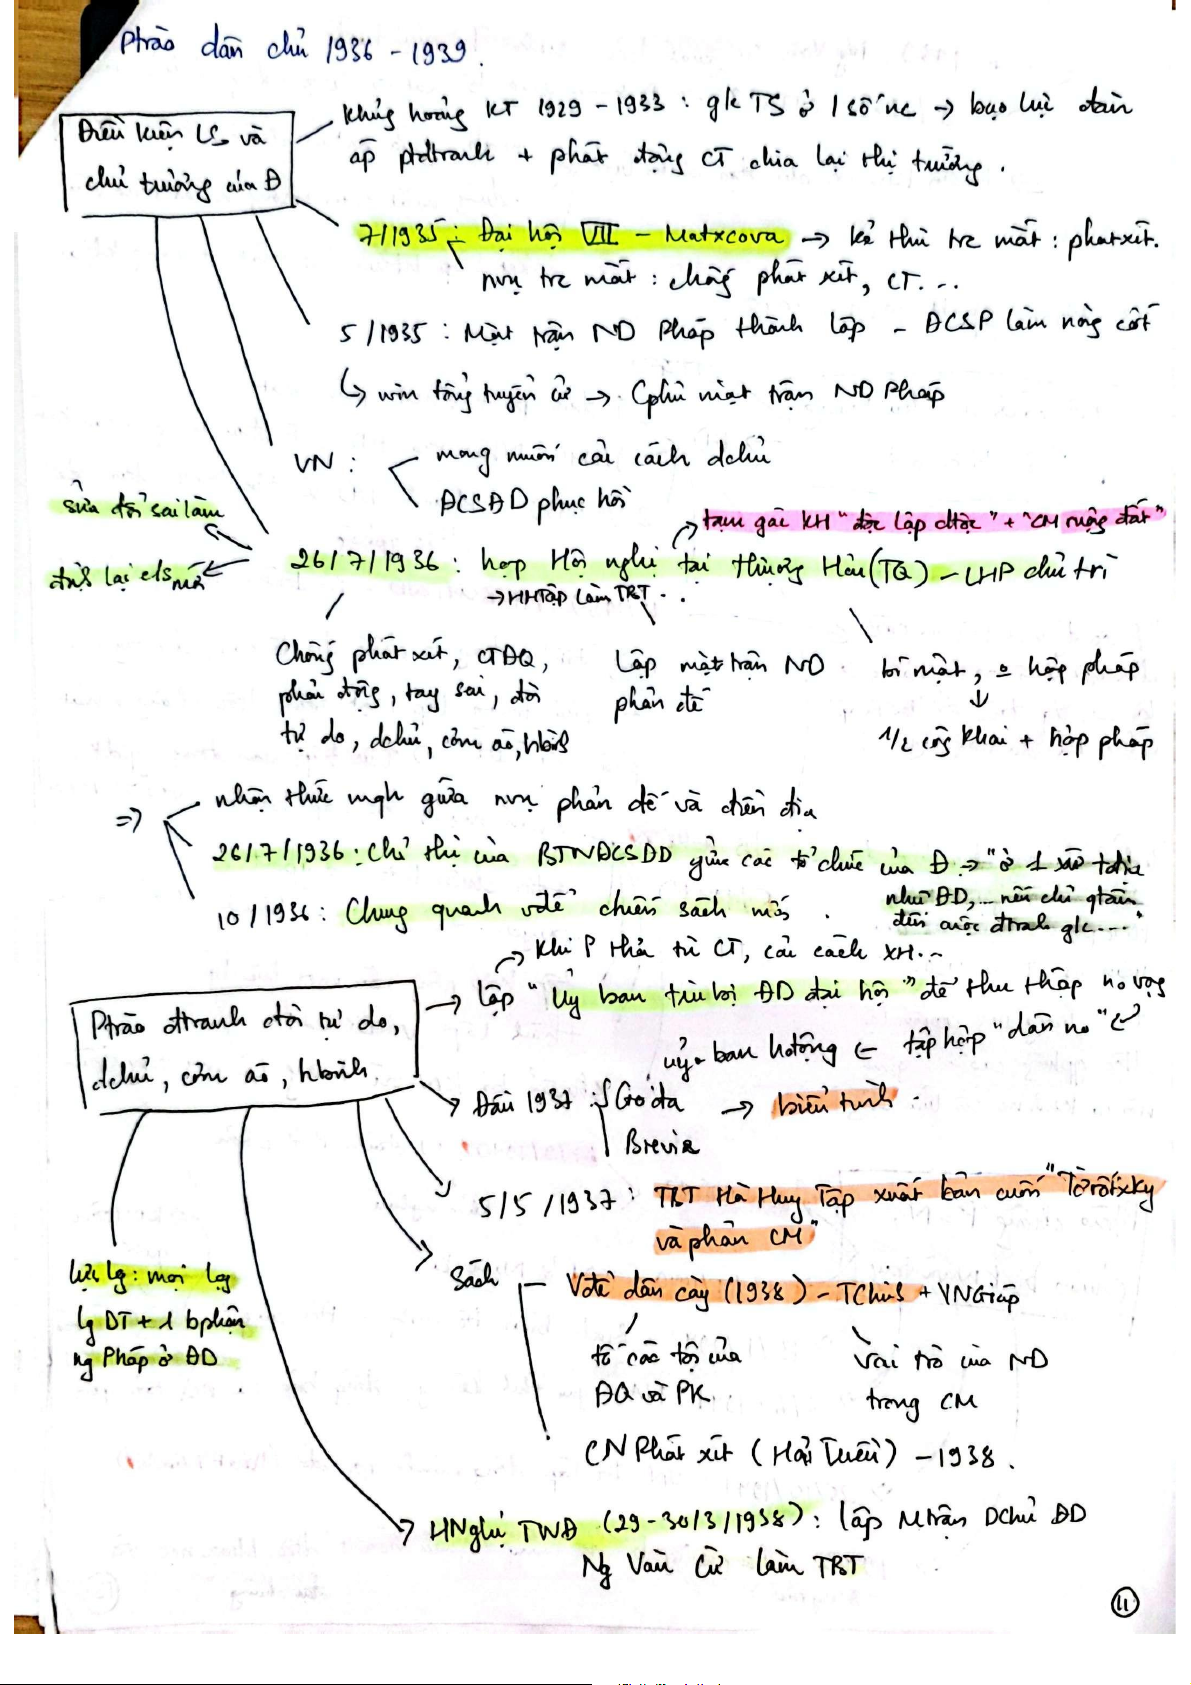 Ptrào dân chủ 1936 - 1939.
Điều kiện LS và
chủ trương của Đ
Khủng hoảng KT 1929 - 1933 : gk TS ở 1 số nc → bạo lực đàn
áp ptđtranh + phát động CT chia lại thị trường.
7/1935 : Đại hội VII - Matxcova → kẻ thù trc mắt : phatxit.
nvụ trc mắt : chống phát xít, CT...
5/1935 : Mặt trận ND Pháp thành lập - ĐCSP làm nòng cốt
↳ win tổng tuyển cử → Cphủ mặt trận ND Pháp
VN :
mong muốn cải cách dchủ
ĐCSĐD phục hồi
sửa đổi sai lầm
→ tạm gác KH "độc lập dtộc" + "CM ruộng đất"
26/7/1936 : họp Hội nghị tại Thượng Hải (TQ) - LHP chủ trì
→ HHTập làm TBT...
lại cls mới
Chống phát xít, CTĐQ,
phản động, tay sai, đòi
tự do, dchủ, cơm áo, hbình
Lập mặt trận ND
phản đế
bí mật, hợp pháp
↓
1/2 công khai + hợp pháp
⇒
nhận thức mqh giữa nvụ phản đế và điền địa
26/7/1936 : Chỉ thị của BTWĐCSĐD gửi các tổ chức của Đ → "ở 1 xứ tđịa
như ĐD,... nếu chỉ qtâm
đến cuộc đtranh gk..."
10/1936 : Chung quanh vđề chiến sách mới.
→ Khi P thả tù CT, cải cách XH...
Ptrào đtranh đòi tự do,
dchủ, cơm áo, hbình.
→ lập "Uỷ ban trù bị ĐD đại hội" để thu thập ng vọng
uỷ ban hđộng ← tập hợp "dân ng" ↵
→ Đầu 1937 : Gôđa
Brevie
→ biểu tình.
5/5/1937 : TBT Hà Huy Tập xuất bản cuốn "Tờrốtxky
và phản CM"
Sách
Vđề dân cày (1938) - TChinh + VNGiáp
tố cáo tội của
ĐQ và PK.
Vai trò của ND
trong CM
CN Phát xít (Hải Triều) - 1938.
lực lg : mọi lg
lg DT + 1 bphận
ng Pháp ở ĐD
→ HNghị TWĐ (29-30/3/1938) : lập Mtrận Dchủ ĐD
Ng Văn Cừ làm TBT
11